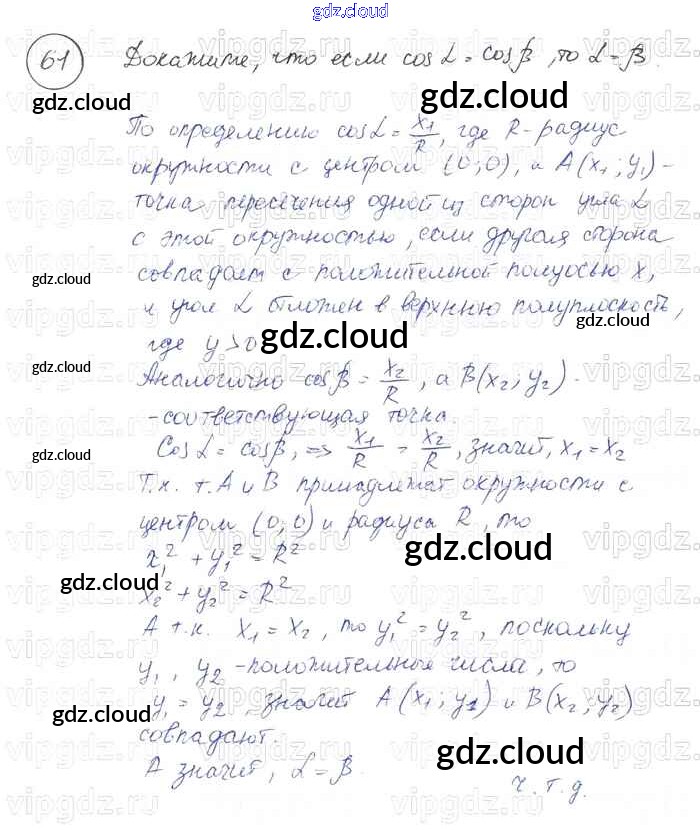 gdz.cloud
61 Докажите, что если cos α = cos β, то α = β
По определению cos α = x₁/R, где R-радиус
окружности с центром (0;0), а A(x₁; y₁)-
точка пересечения одной из сторон угла α
с этой окружностью, если другая сторона
совпадает с положительной полуосью x,
и угол α отложен в верхнюю полуплоскость,
где y > 0
Аналогично cos β = x₂/R, а B(x₂; y₂) -
-соответствующая точка.
Cos α = cos β, => x₁/R = x₂/R, значит, x₁ = x₂
Т.к. т. A и B принадлежат окружности с
центром (0;0) и радиуса R, то
x₁² + y₁² = R²
x₂² + y₂² = R²
А т.к. x₁ = x₂, то y₁² = y₂², поскольку
y₁, y₂ -положительные числа, то
y₁ = y₂, значит A(x₁; y₁) и B(x₂; y₂)
совпадают.
А значит, α = β.
ч.т.д.